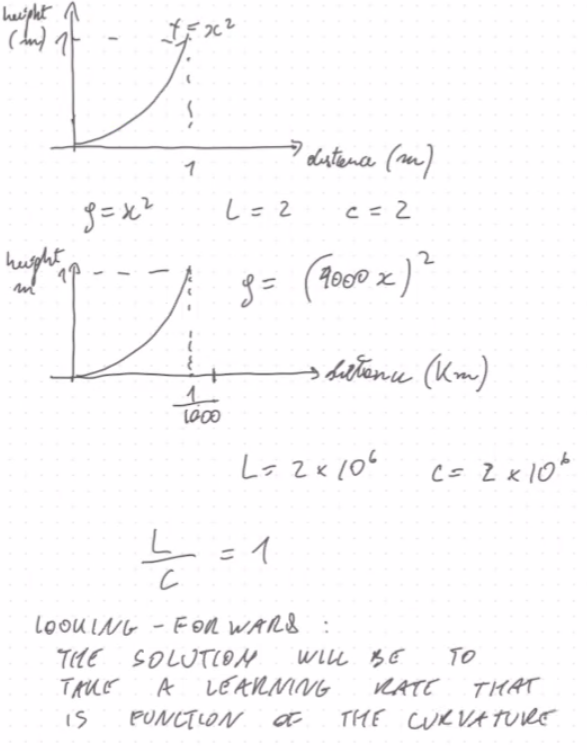 height
(m) 1
f = x²
1
distance (m)
g = x²   L = 2   c = 2
height
m 1
g = (1000 x)²
distance (Km)
1/1000
L = 2 × 10⁶   c = 2 × 10⁶
L/C = 1
LOOKING-FORWARD :
THE SOLUTION WILL BE TO
TAKE A LEARNING RATE THAT
IS FUNCTION OF THE CURVATURE